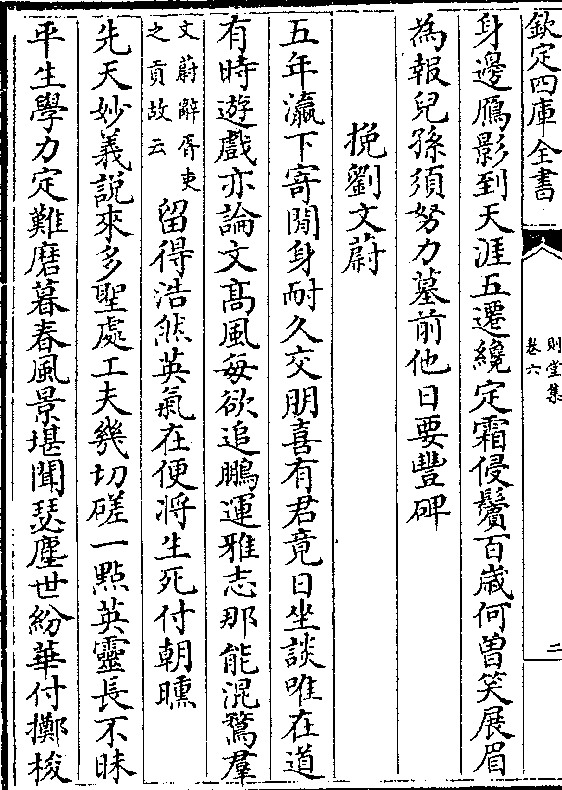 欽定四庫全書
則堂集
卷六
二
身邊鴈影到天涯五遷纔定霜侵鬢百歲何曾笑展眉
為報兒孫須努力墓前他日要豐碑
挽劉文蔚
五年瀛下寄閒身耐久交朋喜有君竟日坐談唯在道
有時遊戲亦論文髙風每欲追鵬運雅志那能混鶩羣
文蔚辭胥吏
之貢故云
留得浩然英氣在便將生死付朝曛
先天妙義說來多聖處工夫幾切磋一點英靈長不昧
平生學力定難磨暮春風景堪聞瑟塵世紛華付擲梭